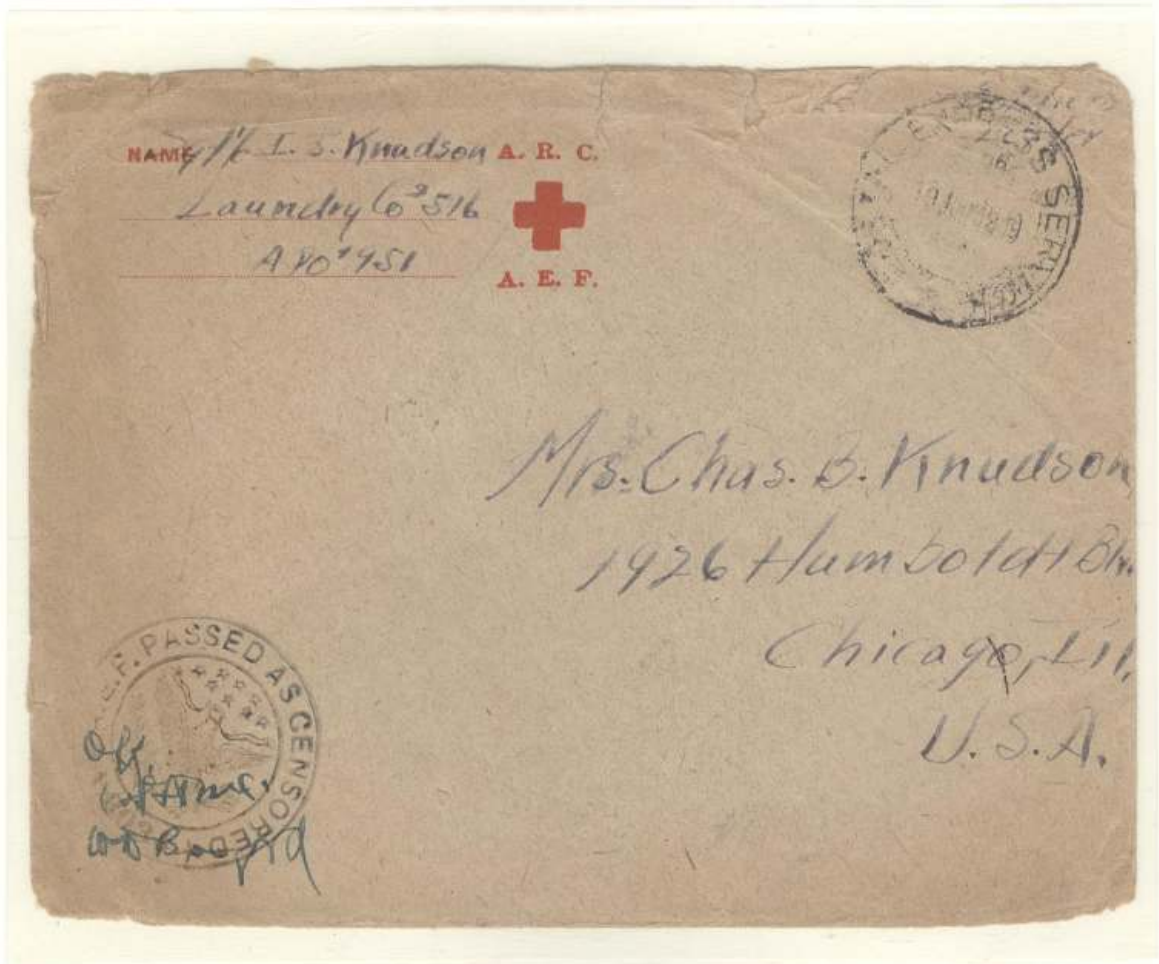 NAME I. S. Knudson A. R. C.
Laundry Co 516
APO 951
A. E. F.
SERVICE
Mrs. Chas. B. Knudson
1926 Humboldt Blv.
Chicago, Ill.
U. S. A.
E.F. PASSED AS CENSORED